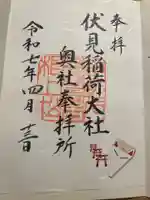 奉拝
伏見稲荷大社
奥社奉拝所
令和七年四月三日